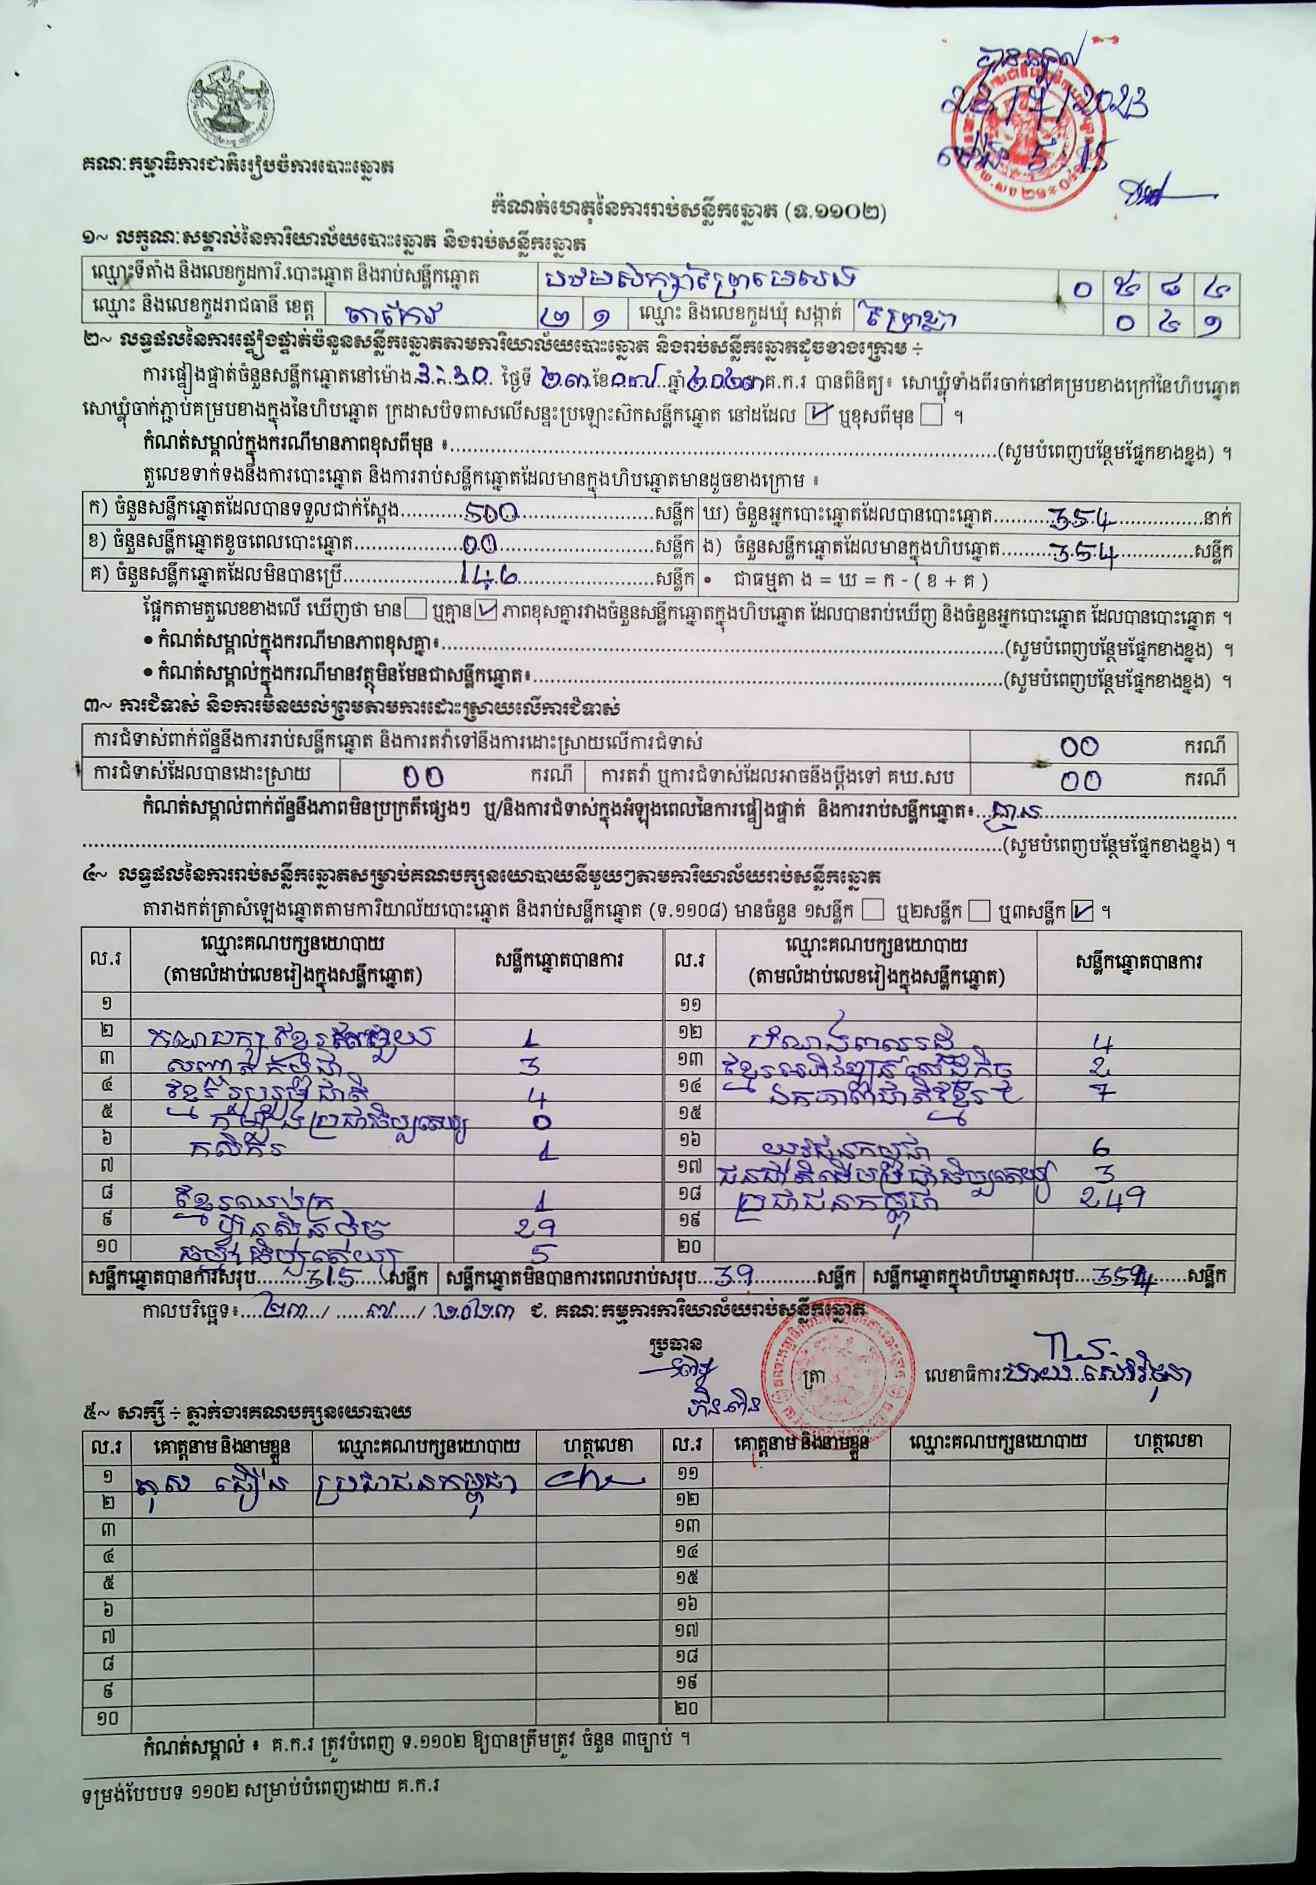 បានឃើញ
23/7/2023
ម៉ោង 5:15
គណៈកម្មាធិការជាតិរៀបចំការបោះឆ្នោត
កំណត់ហេតុនៃការរាប់សន្លឹកឆ្នោត (ទ.១១០២)
១~ លក្ខណៈសម្គាល់នៃការិយាល័យបោះឆ្នោត និងរាប់សន្លឹកឆ្នោត
ឈ្មោះទីតាំង និងលេខកូដការិ.បោះឆ្នោត និងរាប់សន្លឹកឆ្នោត បឋមសិក្សាព្រៃមេលង ០ ៥ ៨ ៤
ឈ្មោះ និងលេខកូដរាជធានី ខេត្ត តាកែវ ២ ១ ឈ្មោះ និងលេខកូដឃុំ សង្កាត់ ព្រៃខ្លា ០ ៤ ១
២~ លទ្ធផលនៃការផ្ទៀងផ្ទាត់ចំនួនសន្លឹកឆ្នោតតាមការិយាល័យបោះឆ្នោត និងរាប់សន្លឹកឆ្នោតដូចខាងក្រោម ÷
ការផ្ទៀងផ្ទាត់ចំនួនសន្លឹកឆ្នោតនៅម៉ោង 3:30 ថ្ងៃទី ២៣ ខែ ០៧ ឆ្នាំ ២០២៣ គ.ក.រ បានពិនិត្យ៖ សោឃ្លុំទាំងពីរចាក់នៅគម្របខាងក្រៅនៃហិបឆ្នោត
សោឃ្លុំចាក់ភ្ជាប់គម្របខាងក្នុងនៃហិបឆ្នោត ក្រដាសបិទពាសលើសន្ទះប្រឡោះស៊កសន្លឹកឆ្នោត នៅដដែល ☑ ឬខុសពីមុន ☐ ។
កំណត់សម្គាល់ក្នុងករណីមានភាពខុសពីមុន ៖..........(សូមបំពេញបន្ថែមផ្នែកខាងខ្នង) ។
តួលេខទាក់ទងនឹងការបោះឆ្នោត និងការរាប់សន្លឹកឆ្នោតដែលមានក្នុងហិបឆ្នោតមានដូចខាងក្រោម ៖
ក) ចំនួនសន្លឹកឆ្នោតដែលបានទទួលជាក់ស្ដែង.....500.....សន្លឹក ឃ) ចំនួនអ្នកបោះឆ្នោតដែលបានបោះឆ្នោត.....354.....នាក់
ខ) ចំនួនសន្លឹកឆ្នោតខូចពេលបោះឆ្នោត.....00.....សន្លឹក ង) ចំនួនសន្លឹកឆ្នោតដែលមានក្នុងហិបឆ្នោត.....354.....សន្លឹក
គ) ចំនួនសន្លឹកឆ្នោតដែលមិនបានប្រើ.....146.....សន្លឹក • ជាធម្មតា ង = ឃ = ក - ( ខ + គ )
ផ្អែកតាមតួលេខខាងលើ ឃើញថា មាន ☐ ឬគ្មាន ☑ ភាពខុសគ្នារវាងចំនួនសន្លឹកឆ្នោតក្នុងហិបឆ្នោត ដែលបានរាប់ឃើញ និងចំនួនអ្នកបោះឆ្នោត ដែលបានបោះឆ្នោត ។
• កំណត់សម្គាល់ក្នុងករណីមានភាពខុសគ្នា៖..........(សូមបំពេញបន្ថែមផ្នែកខាងខ្នង) ។
• កំណត់សម្គាល់ក្នុងករណីមានវត្ថុមិនមែនជាសន្លឹកឆ្នោត៖..........(សូមបំពេញបន្ថែមផ្នែកខាងខ្នង) ។
៣~ ការជំទាស់ និងការមិនយល់ព្រមតាមការដោះស្រាយលើការជំទាស់
ការជំទាស់ពាក់ព័ន្ធនឹងការរាប់សន្លឹកឆ្នោត និងការតវ៉ាទៅនឹងការដោះស្រាយលើការជំទាស់ 00 ករណី
ការជំទាស់ដែលបានដោះស្រាយ 00 ករណី ការតវ៉ា ឬការជំទាស់ដែលអាចនឹងប្ដឹងទៅ គឃ.សប 00 ករណី
កំណត់សម្គាល់ពាក់ព័ន្ធនឹងភាពមិនប្រក្រតីផ្សេងៗ ឬ/និងការជំទាស់ក្នុងអំឡុងពេលនៃការផ្ទៀងផ្ទាត់ និងការរាប់សន្លឹកឆ្នោត៖...គ្មាន..........
..........(សូមបំពេញបន្ថែមផ្នែកខាងខ្នង) ។
៤~ លទ្ធផលនៃការរាប់សន្លឹកឆ្នោតសម្រាប់គណបក្សនយោបាយនីមួយៗតាមការិយាល័យរាប់សន្លឹកឆ្នោត
តារាងកត់ត្រាសំឡេងឆ្នោតតាមការិយាល័យបោះឆ្នោត និងរាប់សន្លឹកឆ្នោត (ទ.១១០៨) មានចំនួន ១សន្លឹក ☐ ឬ២សន្លឹក ☐ ឬ៣សន្លឹក ☑ ។
ល.រ ឈ្មោះគណបក្សនយោបាយ (តាមលំដាប់លេខរៀងក្នុងសន្លឹកឆ្នោត) សន្លឹកឆ្នោតបានការ ល.រ ឈ្មោះគណបក្សនយោបាយ (តាមលំដាប់លេខរៀងក្នុងសន្លឹកឆ្នោត) សន្លឹកឆ្នោតបានការ
១ ១១
២ គណបក្សខ្មែរ 1 ១២ បំណងពលរដ្ឋ 4
៣ សញ្ជាតិកម្ពុជា 3 ១៣ ខ្មែរអភិវឌ្ឍន៍សេដ្ឋកិច្ច 2
៤ ខ្មែររួបរួមជាតិ 4 ១៤ ឯកភាពជាតិខ្មែរ 7
៥ កម្លាំងប្រជាធិបតេយ្យ 0 ១៥
៦ កសិករ 1 ១៦ យុវជនកម្ពុជា 6
៧ ១៧ ជនជាតិដើមប្រជាធិបតេយ្យ 3
៨ ខ្មែរឈប់ក្រ 1 ១៨ ប្រជាជនកម្ពុជា 249
៩ ហ៊្វុនស៊ិនប៉ិច 29 ១៩
១០ ធម្មាធិបតេយ្យ 5 ២០
សន្លឹកឆ្នោតបានការសរុប.....315.....សន្លឹក សន្លឹកឆ្នោតមិនបានការពេលរាប់សរុប...39.....សន្លឹក សន្លឹកឆ្នោតក្នុងហិបឆ្នោតសរុប...354.....សន្លឹក
កាលបរិច្ឆេទ៖....២៣.../.....៧..../ .២០២៣ ជ. គណៈកម្មការការិយាល័យរាប់សន្លឹកឆ្នោត
ប្រធាន
ត្រា
លេខាធិការ:
៥~ សាក្សី ÷ ភ្នាក់ងារគណបក្សនយោបាយ
ល.រ គោត្តនាម និងនាមខ្លួន ឈ្មោះគណបក្សនយោបាយ ហត្ថលេខា ល.រ គោត្តនាម និងនាមខ្លួន ឈ្មោះគណបក្សនយោបាយ ហត្ថលេខា
១ តុស ជឿន ប្រជាជនកម្ពុជា ១១
២ ១២
៣ ១៣
៤ ១៤
៥ ១៥
៦ ១៦
៧ ១៧
៨ ១៨
៩ ១៩
១០ ២០
កំណត់សម្គាល់ ៖ គ.ក.រ ត្រូវបំពេញ ទ.១១០២ ឱ្យបានត្រឹមត្រូវ ចំនួន ៣ច្បាប់ ។
ទម្រង់បែបបទ ១១០២ សម្រាប់បំពេញដោយ គ.ក.រ